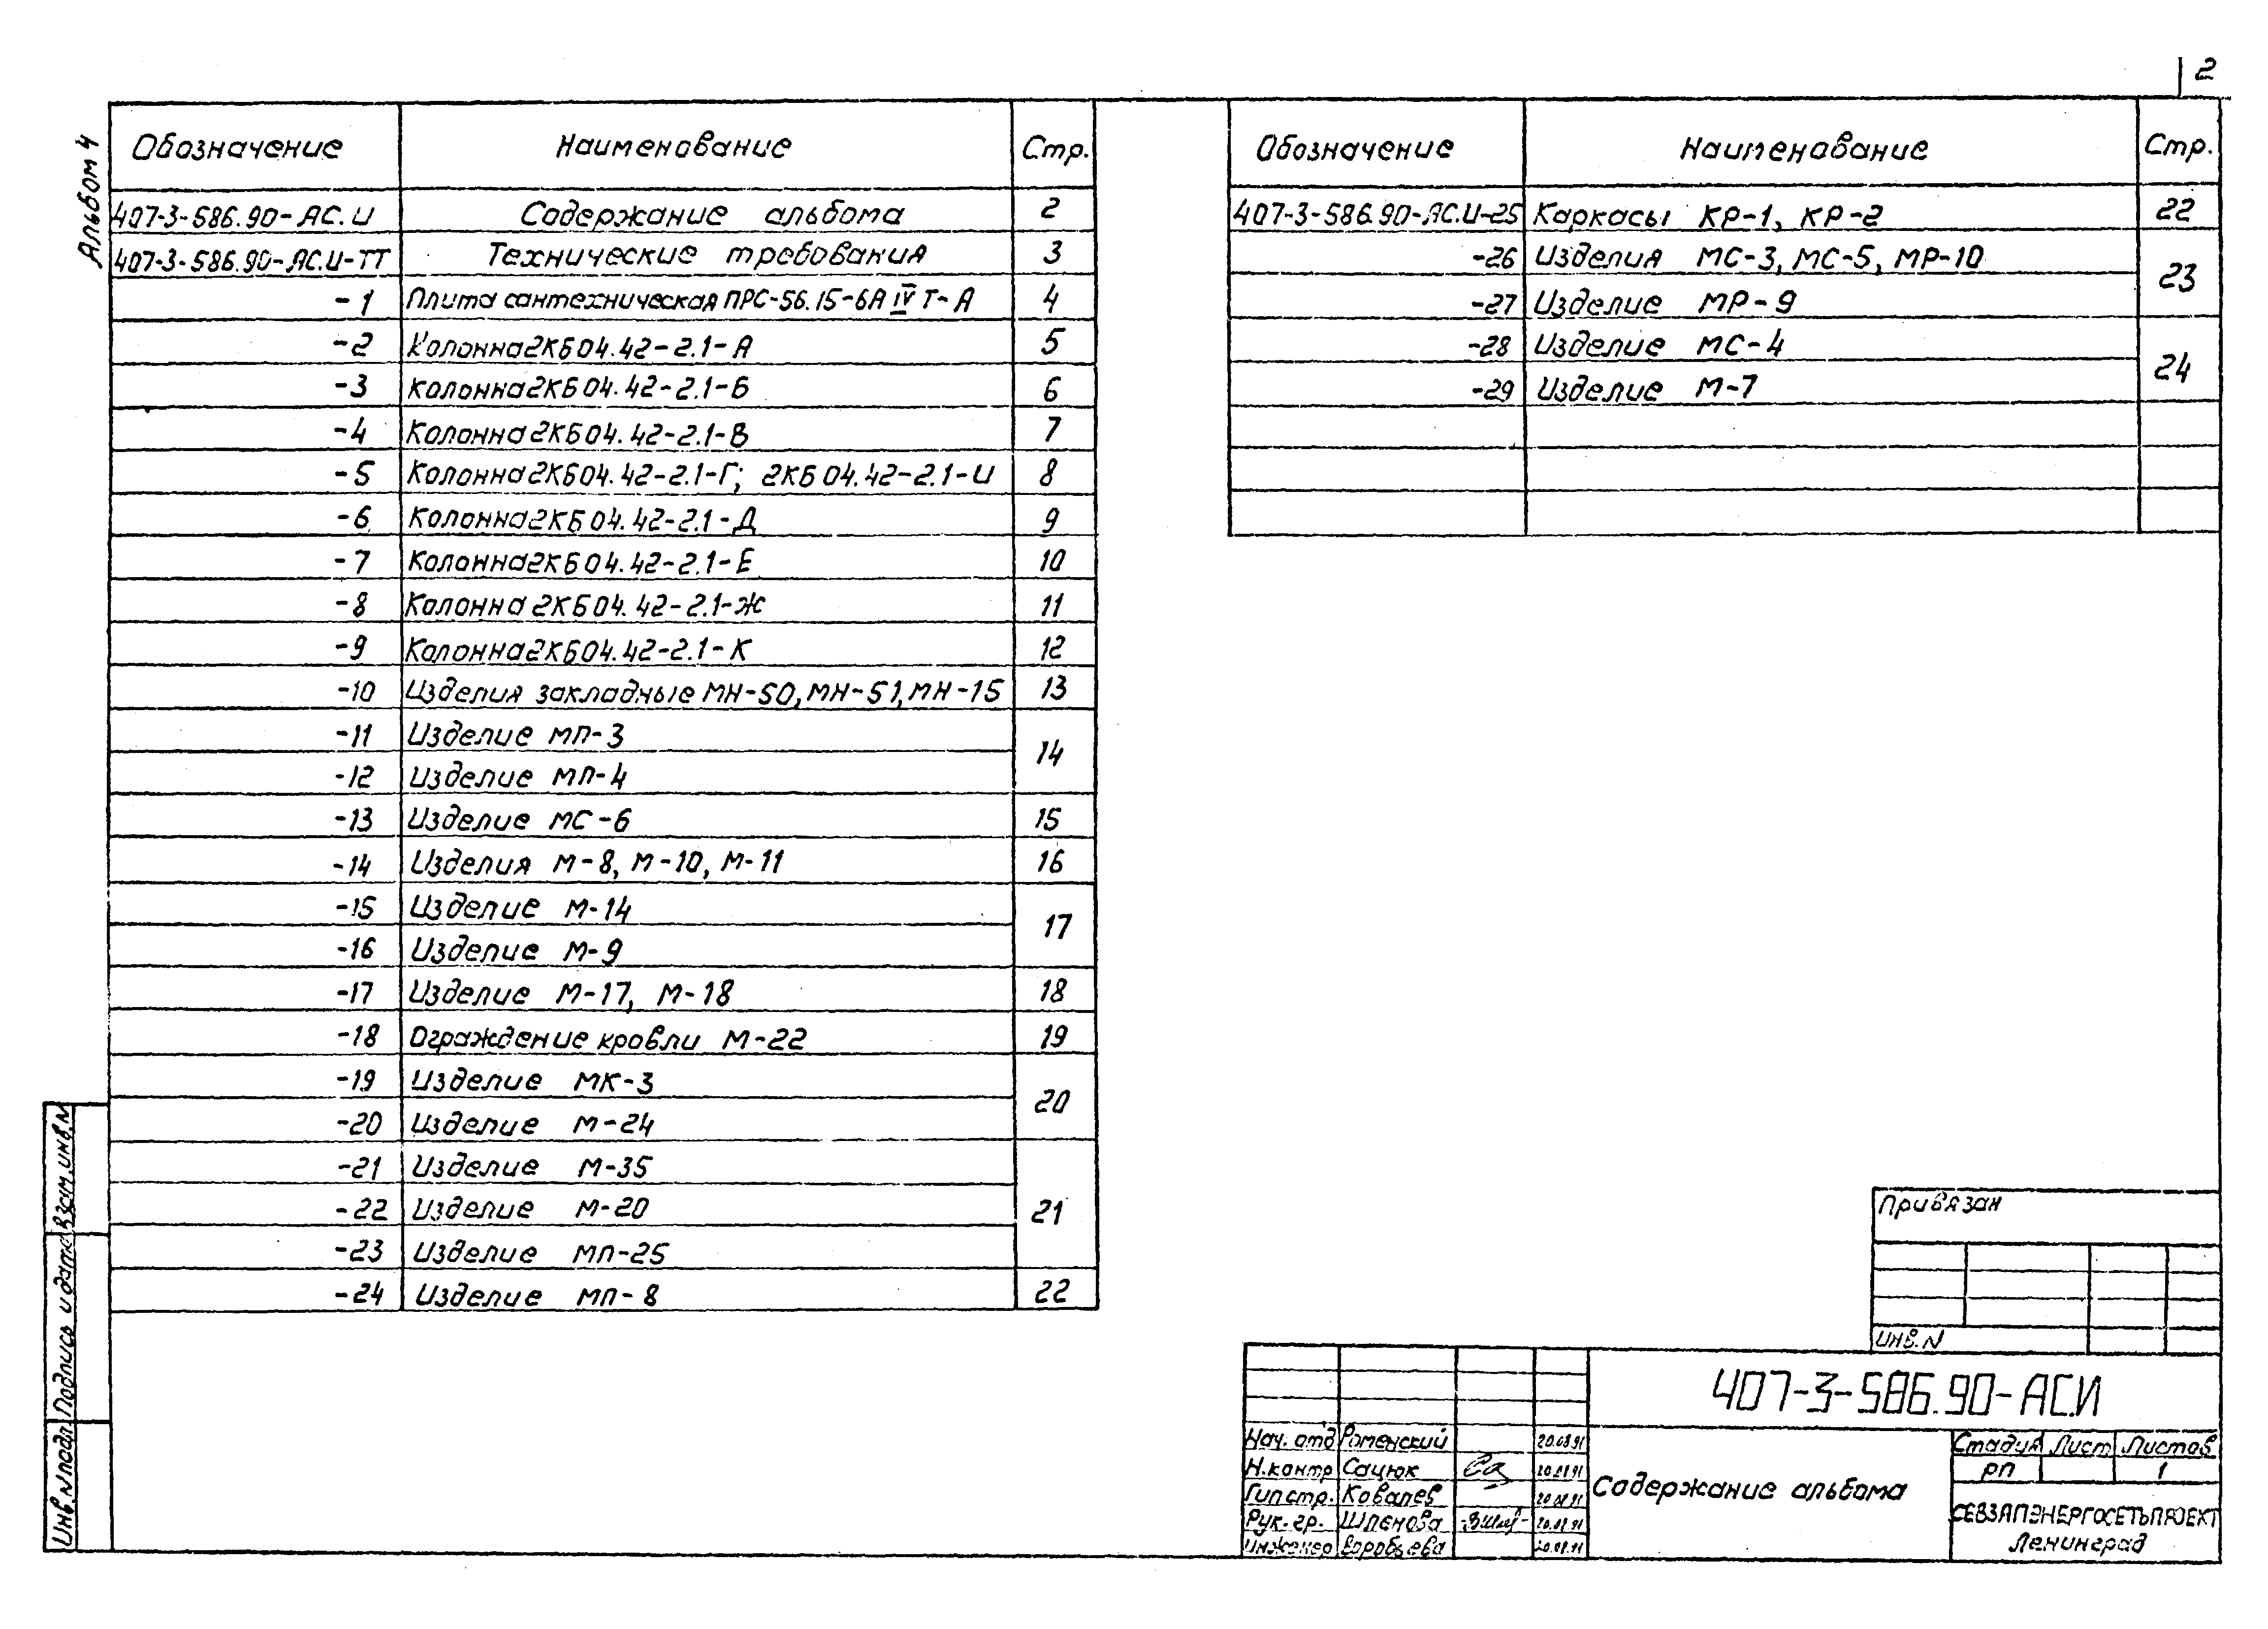 2
Альбом 4
Обозначение Наименование Стр.
407-3-586.90-АС.И Содержание альбома 2
407-3-586.90-АС.И-ТТ Технические требования 3
-1 Плита сантехническая ПРС-56.15-6А IV Т-А 4
-2 Колонна 2КБ04.42-2.1-А 5
-3 Колонна 2КБ04.42-2.1-Б 6
-4 Колонна 2КБ04.42-2.1-В 7
-5 Колонна 2КБ04.42-2.1-Г; 2КБ04.42-2.1-И 8
-6 Колонна 2КБ04.42-2.1-Д 9
-7 Колонна 2КБ04.42-2.1-Е 10
-8 Колонна 2КБ04.42-2.1-Ж 11
-9 Колонна 2КБ04.42-2.1-К 12
-10 Изделия закладные МН-50, МН-51, МН-15 13
-11 Изделие МП-3 14
-12 Изделие МП-4
-13 Изделие МС-6 15
-14 Изделия М-8, М-10, М-11 16
-15 Изделие М-14 17
-16 Изделие М-9
-17 Изделие М-17, М-18 18
-18 Ограждение кровли М-22 19
-19 Изделие МК-3 20
-20 Изделие М-24
-21 Изделие М-35
-22 Изделие М-20 21
-23 Изделие МП-25
-24 Изделие МП-8 22
Обозначение Наименование Стр.
407-3-586.90-АС.И-25 Каркасы КР-1, КР-2 22
-26 Изделия МС-3, МС-5, МР-10 23
-27 Изделие МР-9
-28 Изделие МС-4 24
-29 Изделие М-7
Взам. инв. N
Подпись и дата
Инв. N подл.
Привязан
Инв. N
407-3-586.90-АС.И
Нач. отд Роменский 20.08.91
Н.контр Сацюк 20.08.91
Гип стр. Ковалев 20.08.91
Рук. гр. Шленова 20.08.91
Инженер Воробьева 20.08.91
Содержание альбома
Стадия Лист Листов
РП 1
СЕВЗАПЭНЕРГОСЕТЬПРОЕКТ
Ленинград